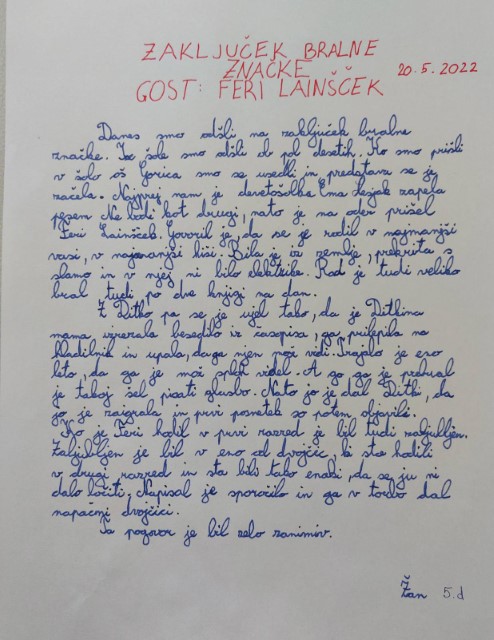 ZAKLJUČEK BRALNE
ZNAČKE
20.5.2022
GOST: FERI LAINŠČEK
Danes smo odšli na zaključek bralne
značke. Iz šole smo odšli ob pol desetih. Ko smo prišli
v šolo OŠ Gorica smo se usedli in predstava se je
začela. Najprej nam je devetošolka Ema Lesjak zapela
pesem Ne bodi kot drugi, nato je na oder prišel
Feri Lainšček. Govoril je, da se je rodil v najmanjši
vasi, v najmanjši hiši. Bila je iz zemlje, prekrita s
slamo in v njej ni bilo elektrike. Rad je tudi veliko
bral tudi po dve knjigi na dan.
Z Ditko pa se je ujel tako, da je Ditkina
mama izrezala besedilo iz časopisa, ga prilepila na
hladilnik in upala, da ga njen mož vidi. Trajalo je eno
leto, da ga je mož sploh videl. A go ga je prebral
je takoj šel pisati glasbo. Nato jo je dal Ditki, da
jo je zaigrala in prvi posnetek so potem objavili.
Ko je Feri hodil v prvi razred je bil tudi zaljubljen.
Zaljubljen je bil v eno od dvojčic, ki sta hodili
v drugi razred in sta bili tako enaki, da se ju ni
dalo ločiti. Napisal je sporočilo in ga v torbo dal
napačni dvojčici.
Ta pogovor je bil zelo zanimiv.
Žan 5.d